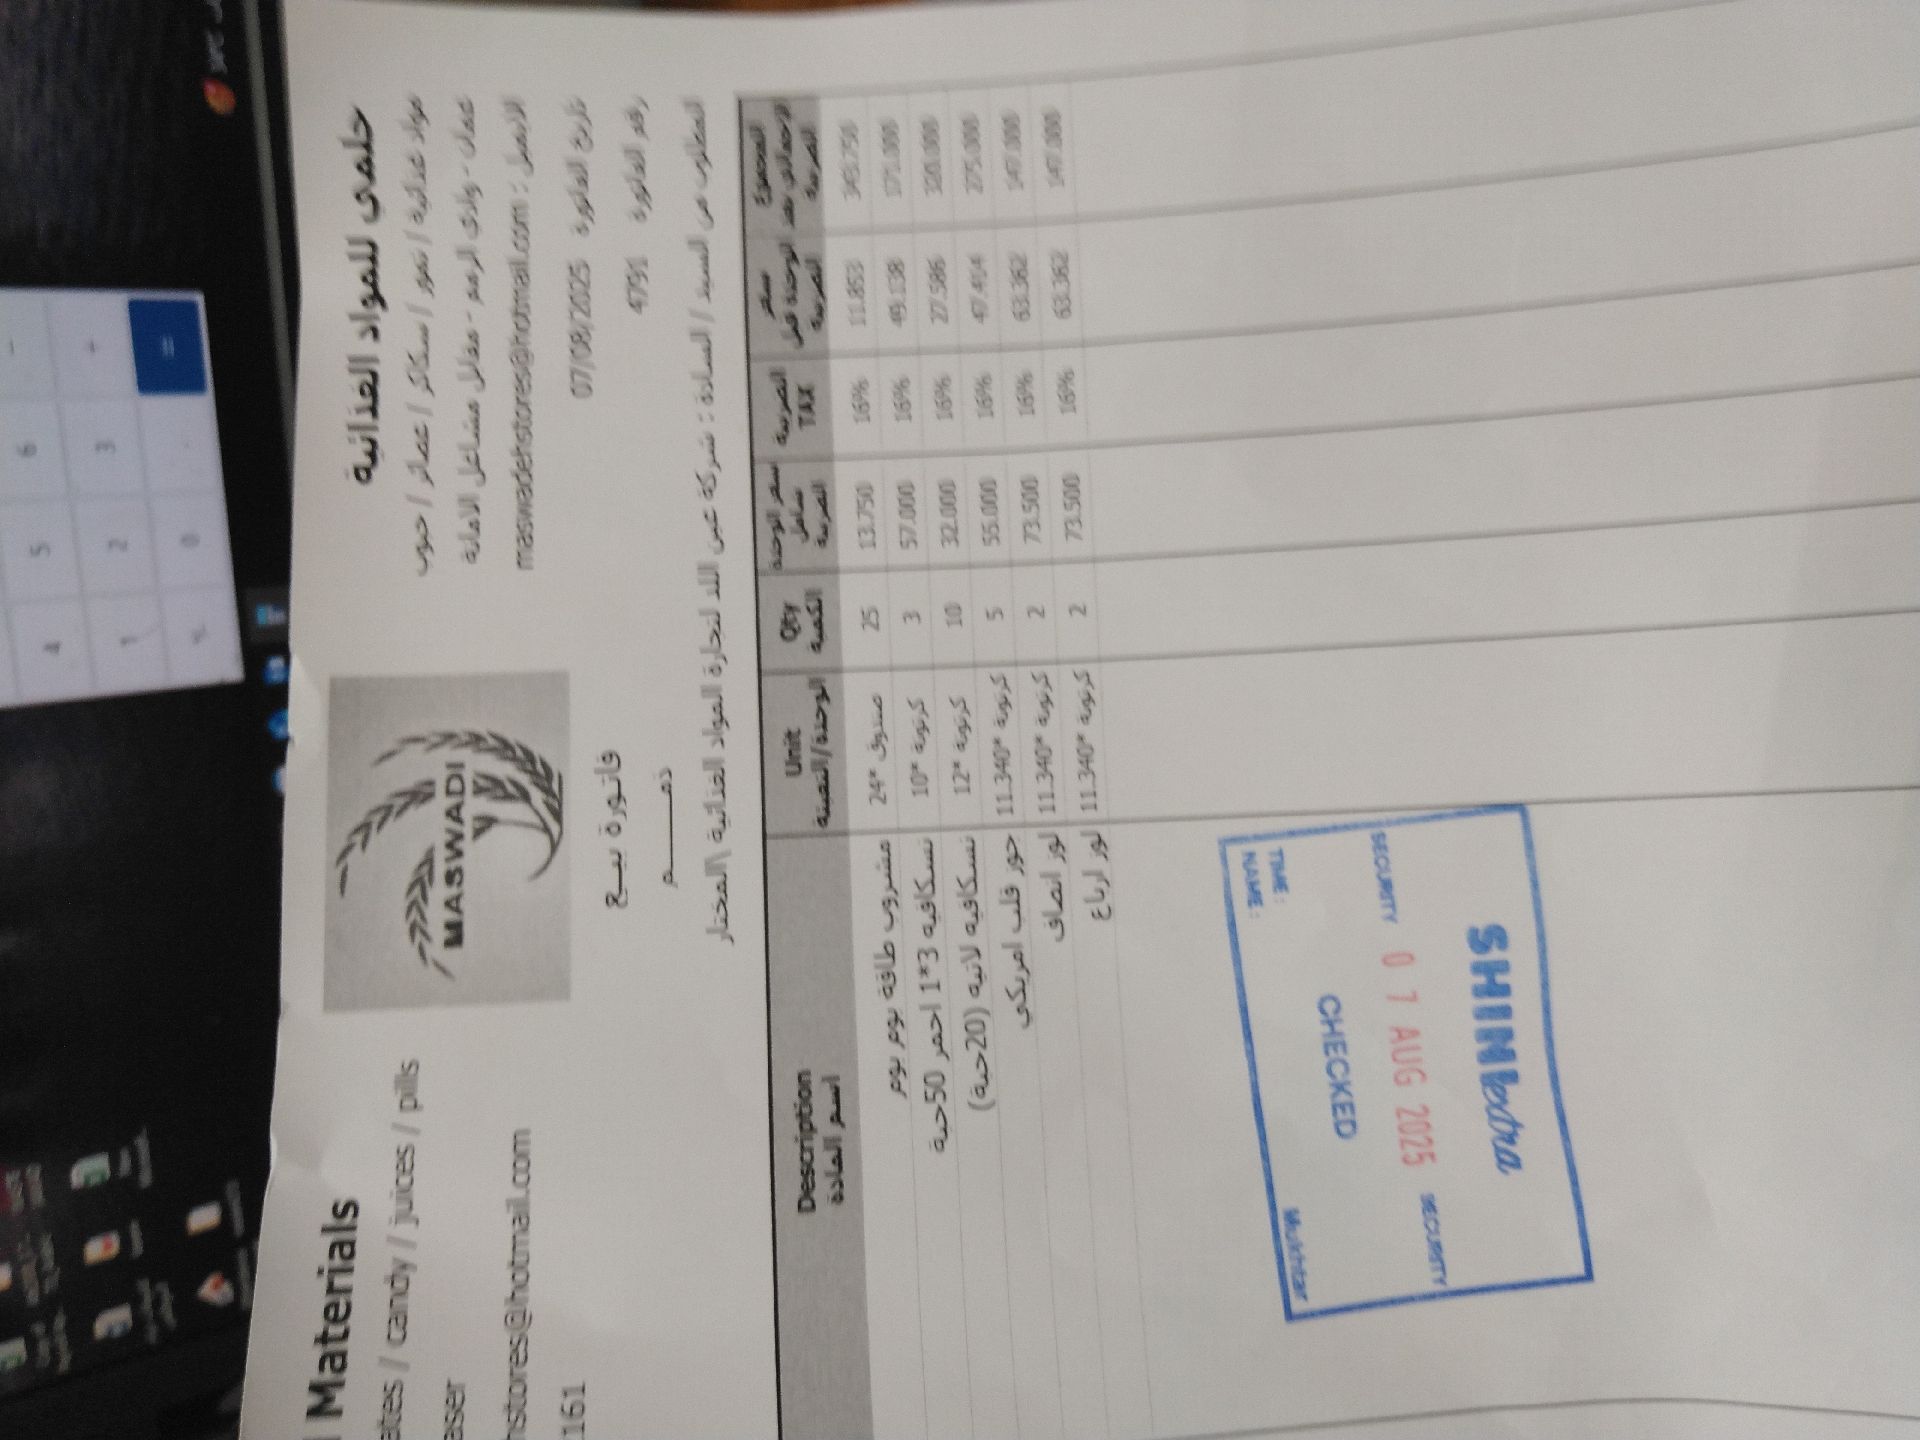 حلمي للمواد الغذائية
مواد غذائية / تمور / سكاكر / عصائر / حبوب
عمان - وادي الرمم - مقابل مشاغل الامانة
الايميل : maswadehstores@hotmail.com
Materials
ates / candy / juices / pills
hstores@hotmail.com
1161
MASWADI
تاريخ الفاتورة 07/08/2025
رقم الفاتورة 4791
فاتورة بيع
ذمم
المطلوب من السيد / السادة : شركة عين اللد لتجارة المواد الغذائية \المختار
Description اسم المادة | Unit الوحدة/التعبئة | Qty الكمية | سعر الوحدة شامل الضريبة | الضريبة TAX | سعر الوحدة قبل الضريبة | المجموع الاجمالي بعد الضريبة
مشروب طاقة بوم بوم | صندوق *24 | 25 | 13.750 | 16% | 11.853 | 343.750
نسكافيه 3*1 احمر 50حبة | كرتونة *10 | 3 | 57.000 | 16% | 49.138 | 171.000
نسكافيه لاتيه (20حبة) | كرتونة *12 | 10 | 32.000 | 16% | 27.586 | 320.000
جوز قلب امريكي | كرتونة *11.340 | 5 | 55.000 | 16% | 47.414 | 275.000
لوز انصاف | كرتونة *11.340 | 2 | 73.500 | 16% | 63.362 | 147.000
لوز ارباع | كرتونة *11.340 | 2 | 73.500 | 16% | 63.362 | 147.000
NAME :
TIME :
Mukhtar
CHECKED
SECURITY 0 7 AUG 2025 SECURITY
SHINextra
4 5 6 -
1 2 3 +
% 0 . =